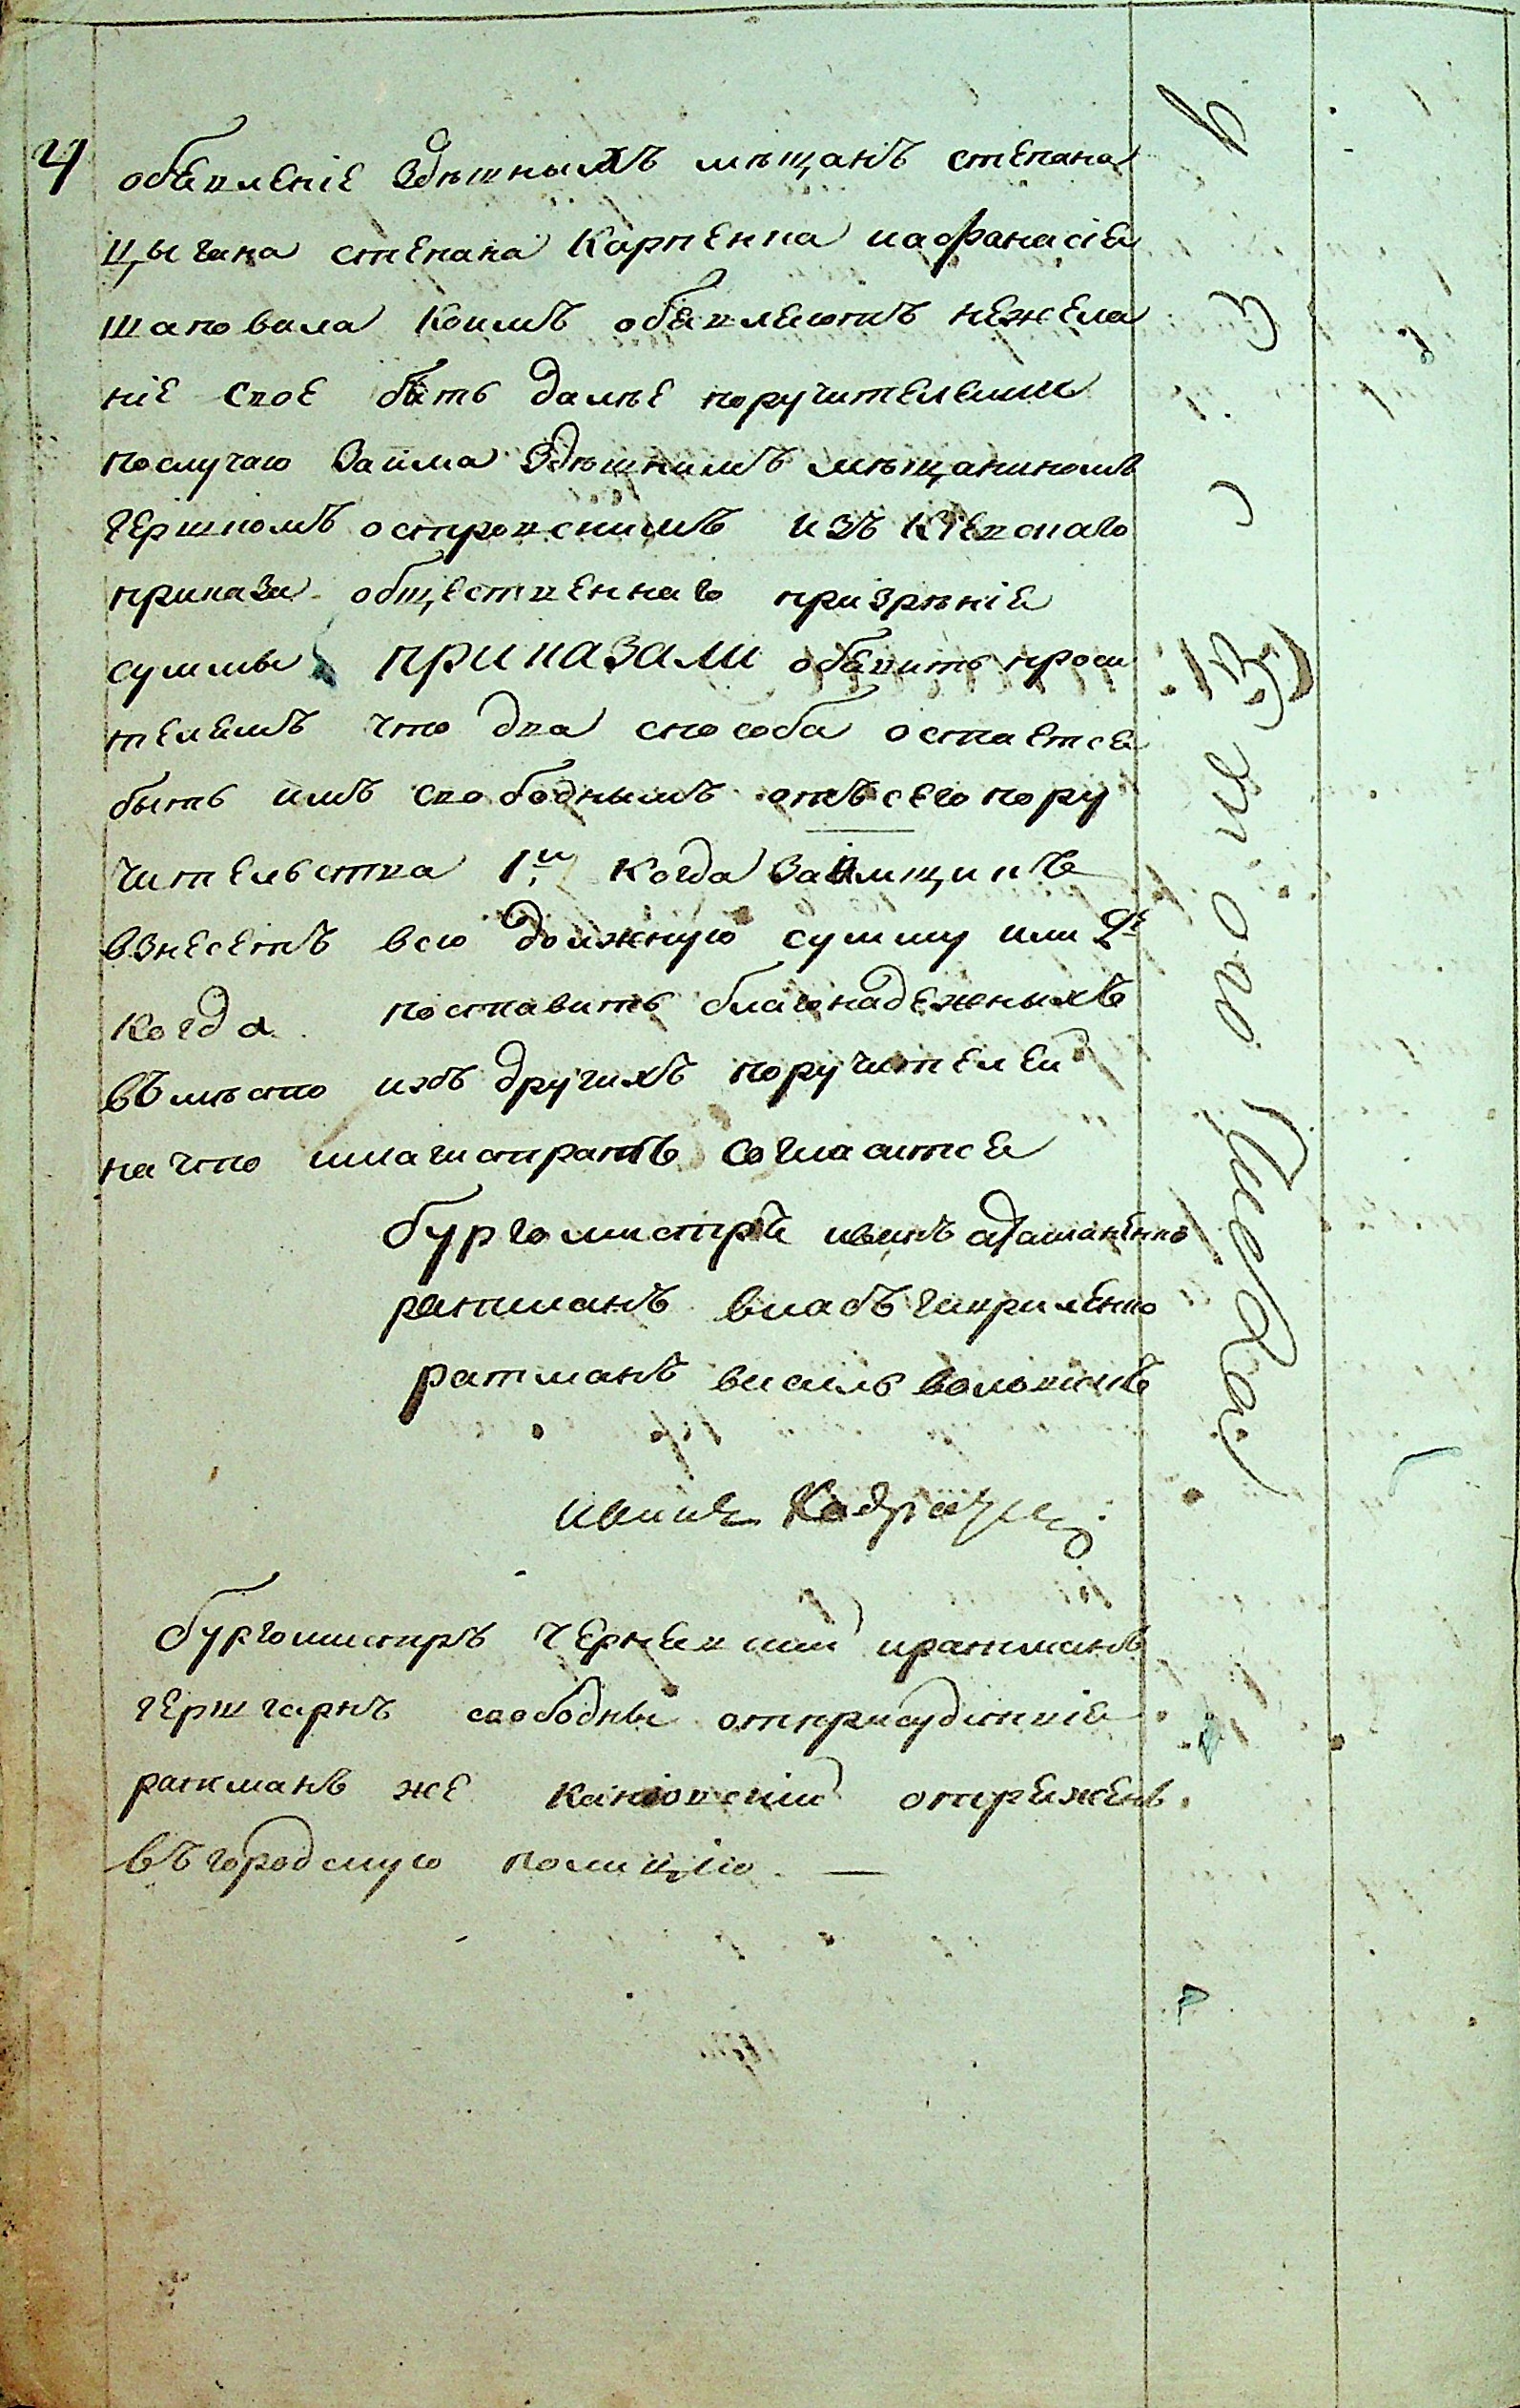 4 обявленіе здѣшныхъ мѣщанъ степана
цыгана степана Карпенка иафанасія
шаповала коимъ обявляютъ нежела
ніе свое быть далѣе поручителями
послучаю займа здѣшнимъ мѣщаниномъ
гершкомъ островскимъ изъ кіевскаго
приказа общественнаго призрѣнія
суммы приказали обявить проси
телямъ что два способа остается
быть имъ свободнымъ отъ сего пору
чительства 1й когда займщикъ
взнесетъ всю должную сумму или 2й
когда поставитъ благонадежныхъ
въмѣсто ихъ другихъ поручителей
на что имагистратъ согласится
бургомистръ иванъ адаманенко
ратманъ власъ гавриленко
ратманъ василь
иванъ
бургомистръ чернявский иратманъ
герш гарнъ свободны отприсудствія
ратманъ же каніовский отряженъ
въ городскую полицію. —